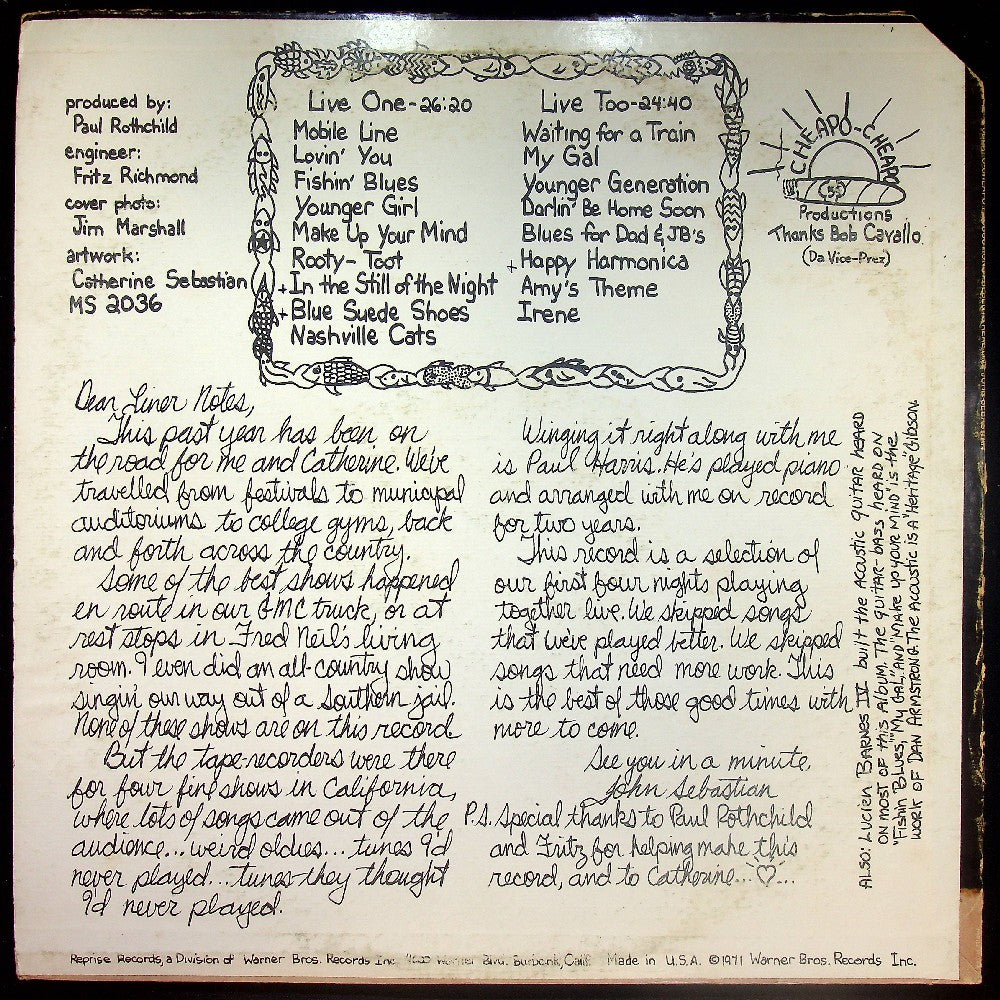 produced by:
Paul Rothchild
engineer:
Fritz Richmond
cover photo:
Jim Marshall
artwork:
Catherine Sebastian
MS 2036
Live One-26:20
Mobile Line
Lovin' You
Fishin' Blues
Younger Girl
Make Up Your Mind
Rooty-Toot
+In the Still of the Night
+Blue Suede Shoes
Nashville Cats
Live Too-24:40
Waiting for a Train
My Gal
Younger Generation
Darlin' Be Home Soon
Blues for Dad & JB's
+Happy Harmonica
Amy's Theme
Irene
CHEAPO-CHEAPO
Productions
Thanks Bob Cavallo
(Da Vice-Prez)
Dear Liner Notes,
This past year has been on
the road for me and Catherine. We've
travelled from festivals to municipal
auditoriums to college gyms, back
and forth across the country.
Some of the best shows happened
en route in our GMC truck, or at
rest stops in Fred Neil's living
room. I even did an all-country show
singin' our way out of a Southern jail.
None of these shows are on this record.
But the tape-recorders were there
for four fine shows in California,
where lots of songs came out of the
audience...weird oldies...tunes I'd
never played...tunes they thought
I'd never played.
Winging it right along with me
is Paul Harris. He's played piano
and arranged with me on record
for two years.
This record is a selection of
our first four nights playing
together live. We skipped songs
that we've played better. We skipped
songs that need more work. This
is the best of those good times with
more to come.
See you in a minute,
John Sebastian
P.S. Special thanks to Paul Rothchild
and Fritz for helping make this
record, and to Catherine...♡...
ALSO: LUCIEN BARNES IV built the ACOUSTIC GUITAR HEARD
ON MOST OF THIS ALBUM. THE GUITAR-BASS HEARD ON
"FISHIN' BLUES," "MY GAL," AND "MAKE UP YOUR MIND" IS the
WORK OF DAN ARMSTRONG. THE ACOUSTIC IS A "HERITAGE" GIBSON.
Reprise Records, a Division of Warner Bros. Records Inc. Warner Blvd. Burbank, Calif. Made in U.S.A. ©1971 Warner Bros. Records Inc.